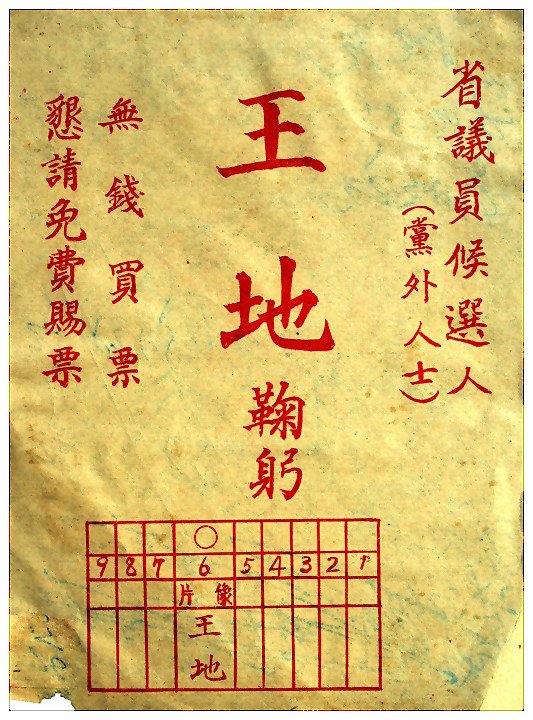 省議員候選人
（黨外人士）
王地鞠躬
無錢買票
懇請免費賜票
○
9 8 7 6 5 4 3 2 1
片像
王地